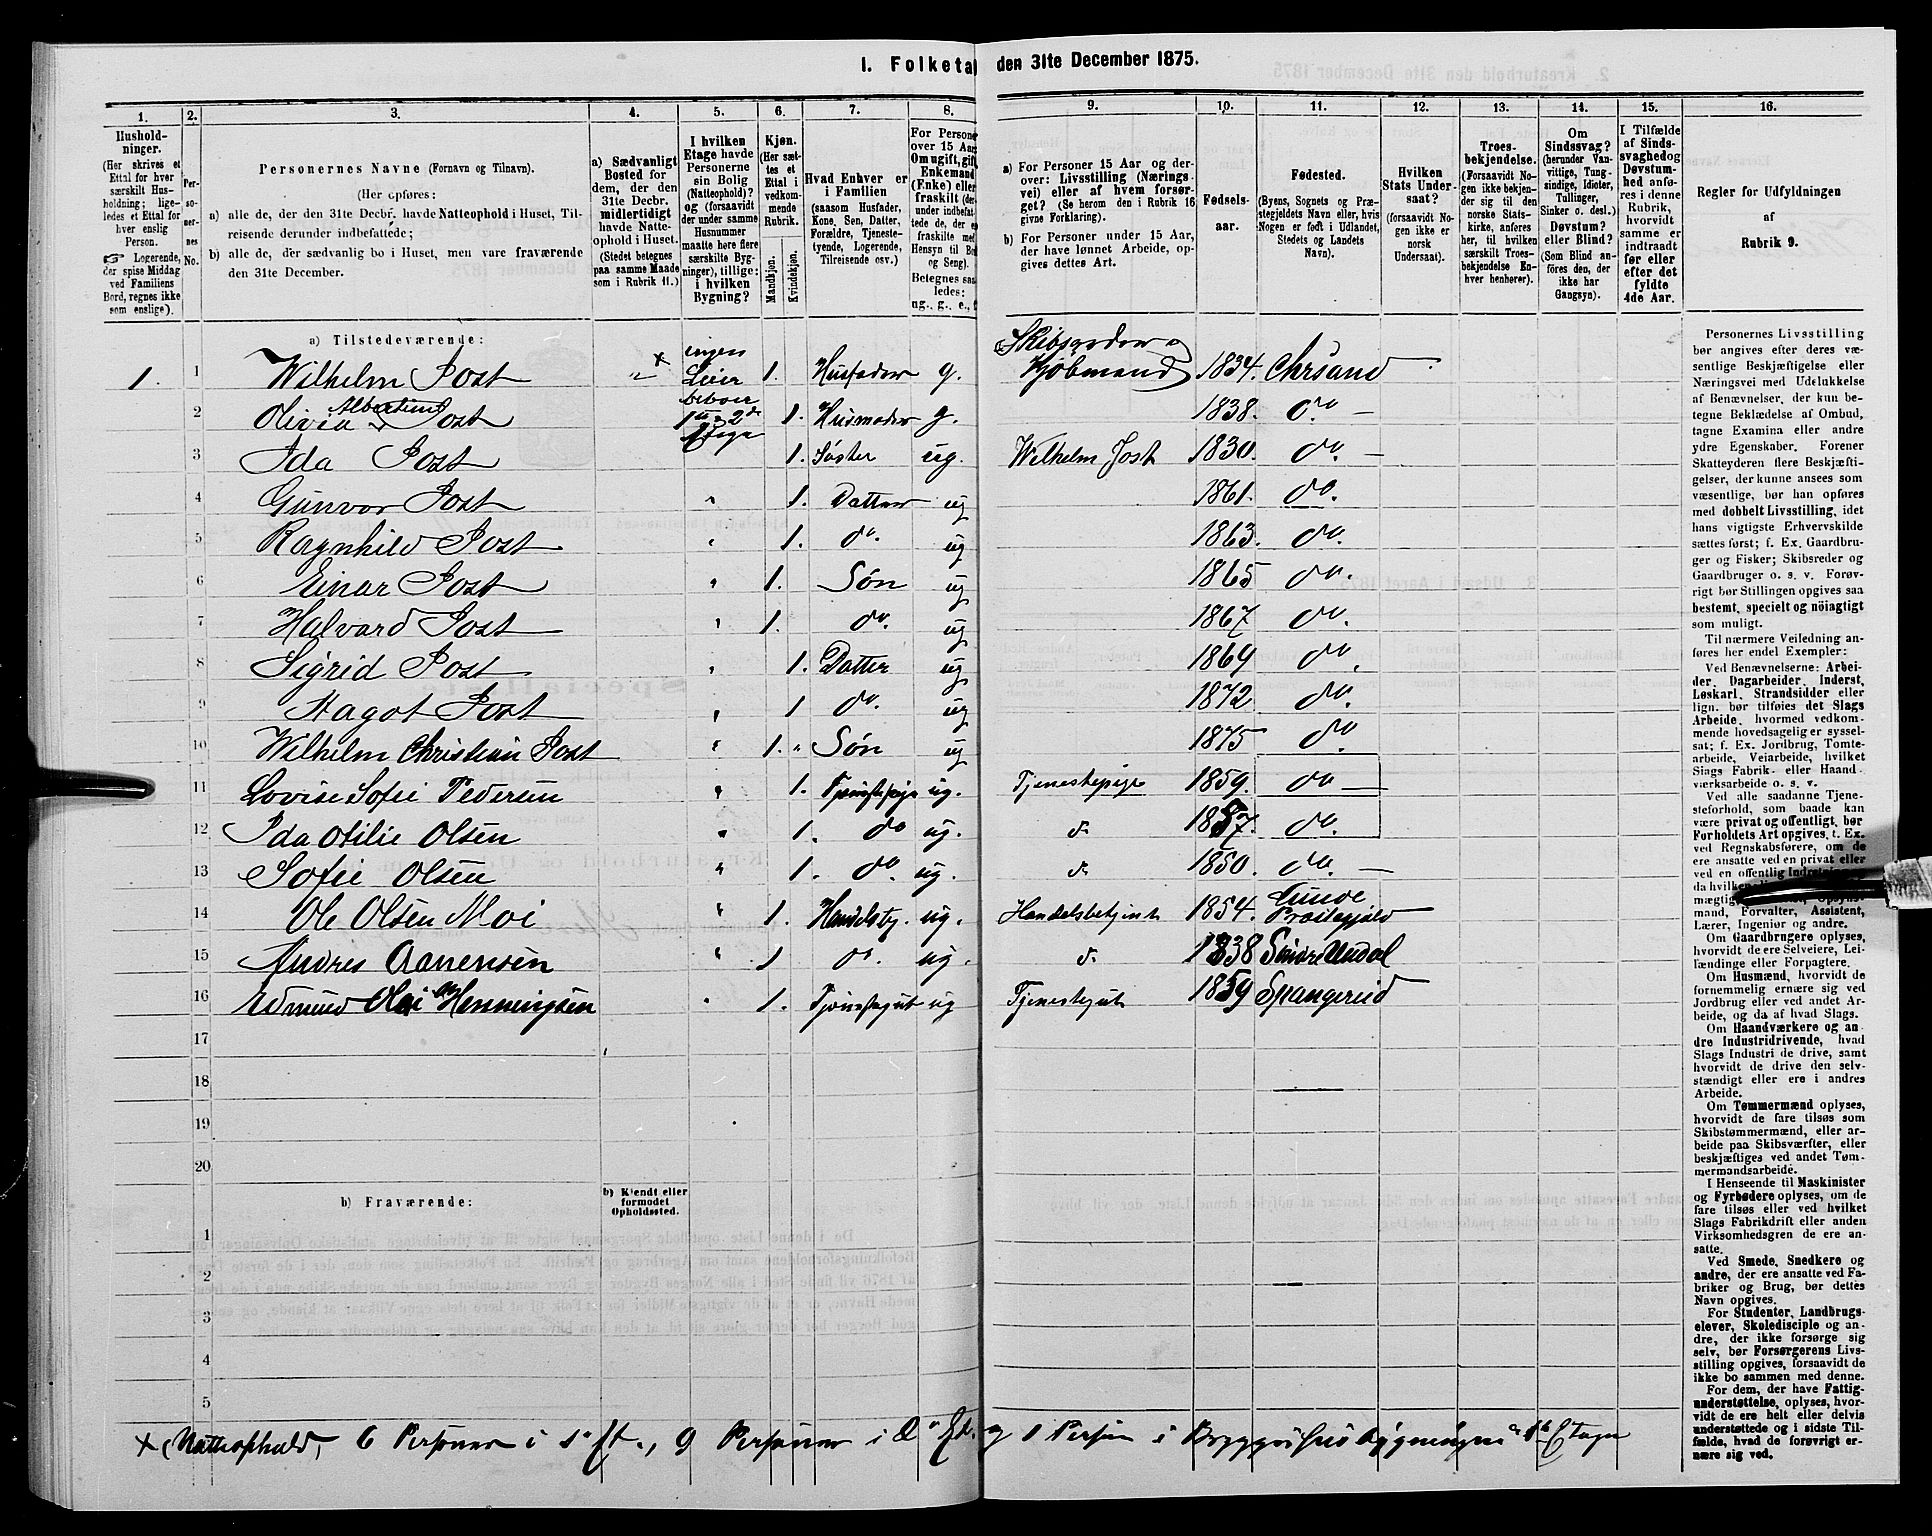 I. Folketal den 31te December 1875.
1. 2. 3. 4. 5. 6. 7. 8. 9. 10. 11. 12. 13. 14. 15. 16.
Hushold-
ninger.
(Her skrives et
Ettal for hver
særskilt Hus-
holdning; lige-
ledes et Ettal for
hver enslig
Person.
☞ Logerende,
der spise Middag
ved Familiens
Bord, regnes ikke
som enslige).
Per-
so-
ner-
nes
No.
Personernes Navne (Fornavn og Tilnavn).
(Her opføres:
a) alle de, der den 31te Decbr. havde Natteophold i Huset, Til-
reisende derunder indbefattede;
b) alle de, der sædvanlig bo i Huset, men vare fraværende
den 31te December.
a) Sædvanligt
Bosted for
dem, der den
31te Decbr.
midlertidigt
havde Natte-
ophold i Huset.
(Stedet betegnes
paa samme Maade
som i Rubrik 11.)
I hvilken
Etage havde
Personerne
sin Bolig
(Natteophold)?
og (forsaavidt
der under samme
Husnummer
maatte høre flere
særskilte Byg-
ninger), tillige:
i hvilken
Bygning?
Kjøn.
(Her sæt-
tes et
Ettal i
vedkom-
mende
Rubrik.
Mandkjøn.
Kvindekjøn.
Hvad Enhver er
i Familien
(saasom Husfader,
Kone, Søn, Datter,
Forældre, Tjeneste-
tyende, Logerende,
Tilreisende osv.)
For Persone
over 15 Aar
Om ugift, gift
Enkemand
(Enke) eller
fraskilt (der-
under indbefat-
tede de, der e
fraskilte med
Hensyn til Bo
og Seng).
Betegnes saa
ledes:
ug., g., e., f
a) For Personer 15 Aar og der-
over: Livsstilling (Nærings
vei) eller af hvem forsør-
get? (Se herom den i Rubrik 16
givne Forklaring).
b) For Personer under 15 Aar,
der have lønnet Arbeide, op-
gives dettes Art.
Fødsels-
aar.
Fødested.
(Byens, Sognets og Præ-
stegjeldets Navn eller, hvis
Nogen er født i Udlandet,
Stedets og Landets
Navn).
Hvilken
Stats Under-
saat?
(forsaavidt No-
gen ikke er
norsk
Undersaat).
Troes-
bekjendelse.
(Forsaavidt No-
gen ikke bekjen-
der sig til den
norske Stats-
kirke, anføres
her, til hvilken
særskilt Troes-
bekjendelse En-
hver henhører).
Om
Sindssvag?
(herunder Van-
vittige, Tung-
sindige, Idioter,
Tullinger,
Sinker o. desl.)
Døvstum?
eller Blind?
(Som Blind an-
føres den, der
ikke har
Gangsyn).
I Tilfælde
af Sinds-
svaghed og
Døvstum-
hed anfø-
res i denne
Rubrik,
hvorvidt
samme er
indtraadt
før eller
efter det
fyldte
4de Aar.
Regler for Udfyldningen
af
Rubrik 9.
a) Tilstedeværende:
1. 1 Wilhelm Jost " × ingen Leier beboer 1ste & 2den Etage 1. Husfader g. Skibsreder og Kjøbmand 1834. Chrsand
2 Olivia Albertine Jost 1. Husmoder g. 1838. do
3 Ida Jost 1. Søster ug. Wilhelm Jost 1830. do
4 Gunvor Jost " 1. Datter ug 1861. do.
5 Ragnhild Jost " 1. do. ug 1863. do.
6 Einar Jost " 1. Søn ug 1865 do.
7 Halvard Jost " 1. do. ug 1867 do.
8 Sigrid Jost " 1. Datter ug 1869 do.
9 Hagot Jost " 1 do. ug 1872 do.
10 Wilhelm Christian Jost " 1. " Søn ug 1875 do.
11 Lovise Sofie Pedersen " 1. Tjenestepige ug. Tjenestepige 1859. do
12 Ida Otilie Olsen " 1. do ug. d. 1857. do.
13 Sofie Olsen " 1. do. ug. d. 1850. do.
14 Ole Olsen Moi " 1. Handelsbj. ug. Handelsbetjent 1854. Lunde Præstegjeld
15 Andres Aanensen " 1 do. ug. d. 1838 Søndre Undal
16 Edmund Olai Henningsen " 1. Tjenestegut ug Tjenestegut 1859 Spangereid
17
18
19
20
b) Fraværende:
b) Kjendt eller
formodet
Opholdssted.
1
2
3
4
5
× (Natteophold, 6 Personer i 1ste Et., 9 Personer i 2den Et. og 1 Person i Bryggerhusbygningens 1ste Etage
Personernes Livsstilling
bør angives efter deres væ-
sentlige Beskjæftigelse eller
Næringsvei med Udelukkelse
af Benævnelser, der kun be-
tegne Beklædelse af Ombud,
tagne Examina eller andre
ydre Egenskaber. Forener
Skatteyderen flere Beskjæfti-
gelser, der kunne ansees som
væsentlige, bør han opføres
med dobbelt Livsstilling, idet
hans vigtigste Erhvervskilde
sættes først; f. Ex. Gaardbru-
ger og Fisker; Skibsreder og
Gaardbruger o. s. v. Forøv-
rigt bør Stillingen opgives saa
bestemt, specielt og nöiagtigt
som muligt.
Til nærmere Veiledning an-
føres her endel Exempler:
Ved Benævnelserne: Arbei-
der, Dagarbeider, Inderst,
Løskarl, Strandsidder eller
lign. bør tilføies det Slags
Arbeide, hvormed vedkom-
mende hovedsagelig er syssel-
sat; f. Ex. Jordbrug, Tomte-
arbeide, Veiarbeide, hvilket
Slags Fabrik- eller Haand-
værksarbeide o. s. v.
Ved alle saadanne Tjene-
steforhold, som baade kan
være privat og offentligt, bør
Forholdets Art opgives, t. Ex.
ved Regnskabsførere, om de
ere ansatte ved en privat eller
ved en offentlig
da hvilken
mægtig
mand, Forvalter, Assistent,
Lærer, Ingeniør og andre.
Om Gaardbrugere oplyses,
hvorvidt de ere Selveiere, Lei-
lændinge eller Forpagtere.
Om Husmænd, hvorvidt de
fornemmelig ernære sig ved
Jordbrug eller ved andet Ar-
beide, og da af hvad Slags.
Om Haandværkere og an-
dre Industridrivende, hvad
Slags Industri de drive, samt
hvorvidt de drive den selv-
stændigt eller ere i andres
Arbeide.
Om Tømmermænd oplyses,
hvorvidt de fare tilsøs som
Skibstømmermænd, eller ar-
beide paa Skibsværfter, eller
beskjæftiges ved andet Tøm-
mermandsarbeide.
I Henseende til Maskinister
og Fyrbødere oplyses, om de
fare tilsøs eller ved hvilket
Slags Fabrikdrift eller anden
Virksomhedsgren de ere an-
satte.
Ved Smede, Snedkere og
andre, der ere ansatte ved Fa-
briker og Brug, bør dettes
Navn opgives.
For Studenter, Landbrugs-
elever, Skoledisciple og an-
dre, der ikke forsørge sig
selv, bør Forsørgerens Livs-
stilling opgives, forsaavidt de
ikke bo sammen med denne.
For dem, der have Fattig-
understøttelse, oplyses, hvor-
vidt de ere helt eller delvis
understøttede og i sidste Til-
fælde, hvad de forøvrigt er-
nære sig ved.